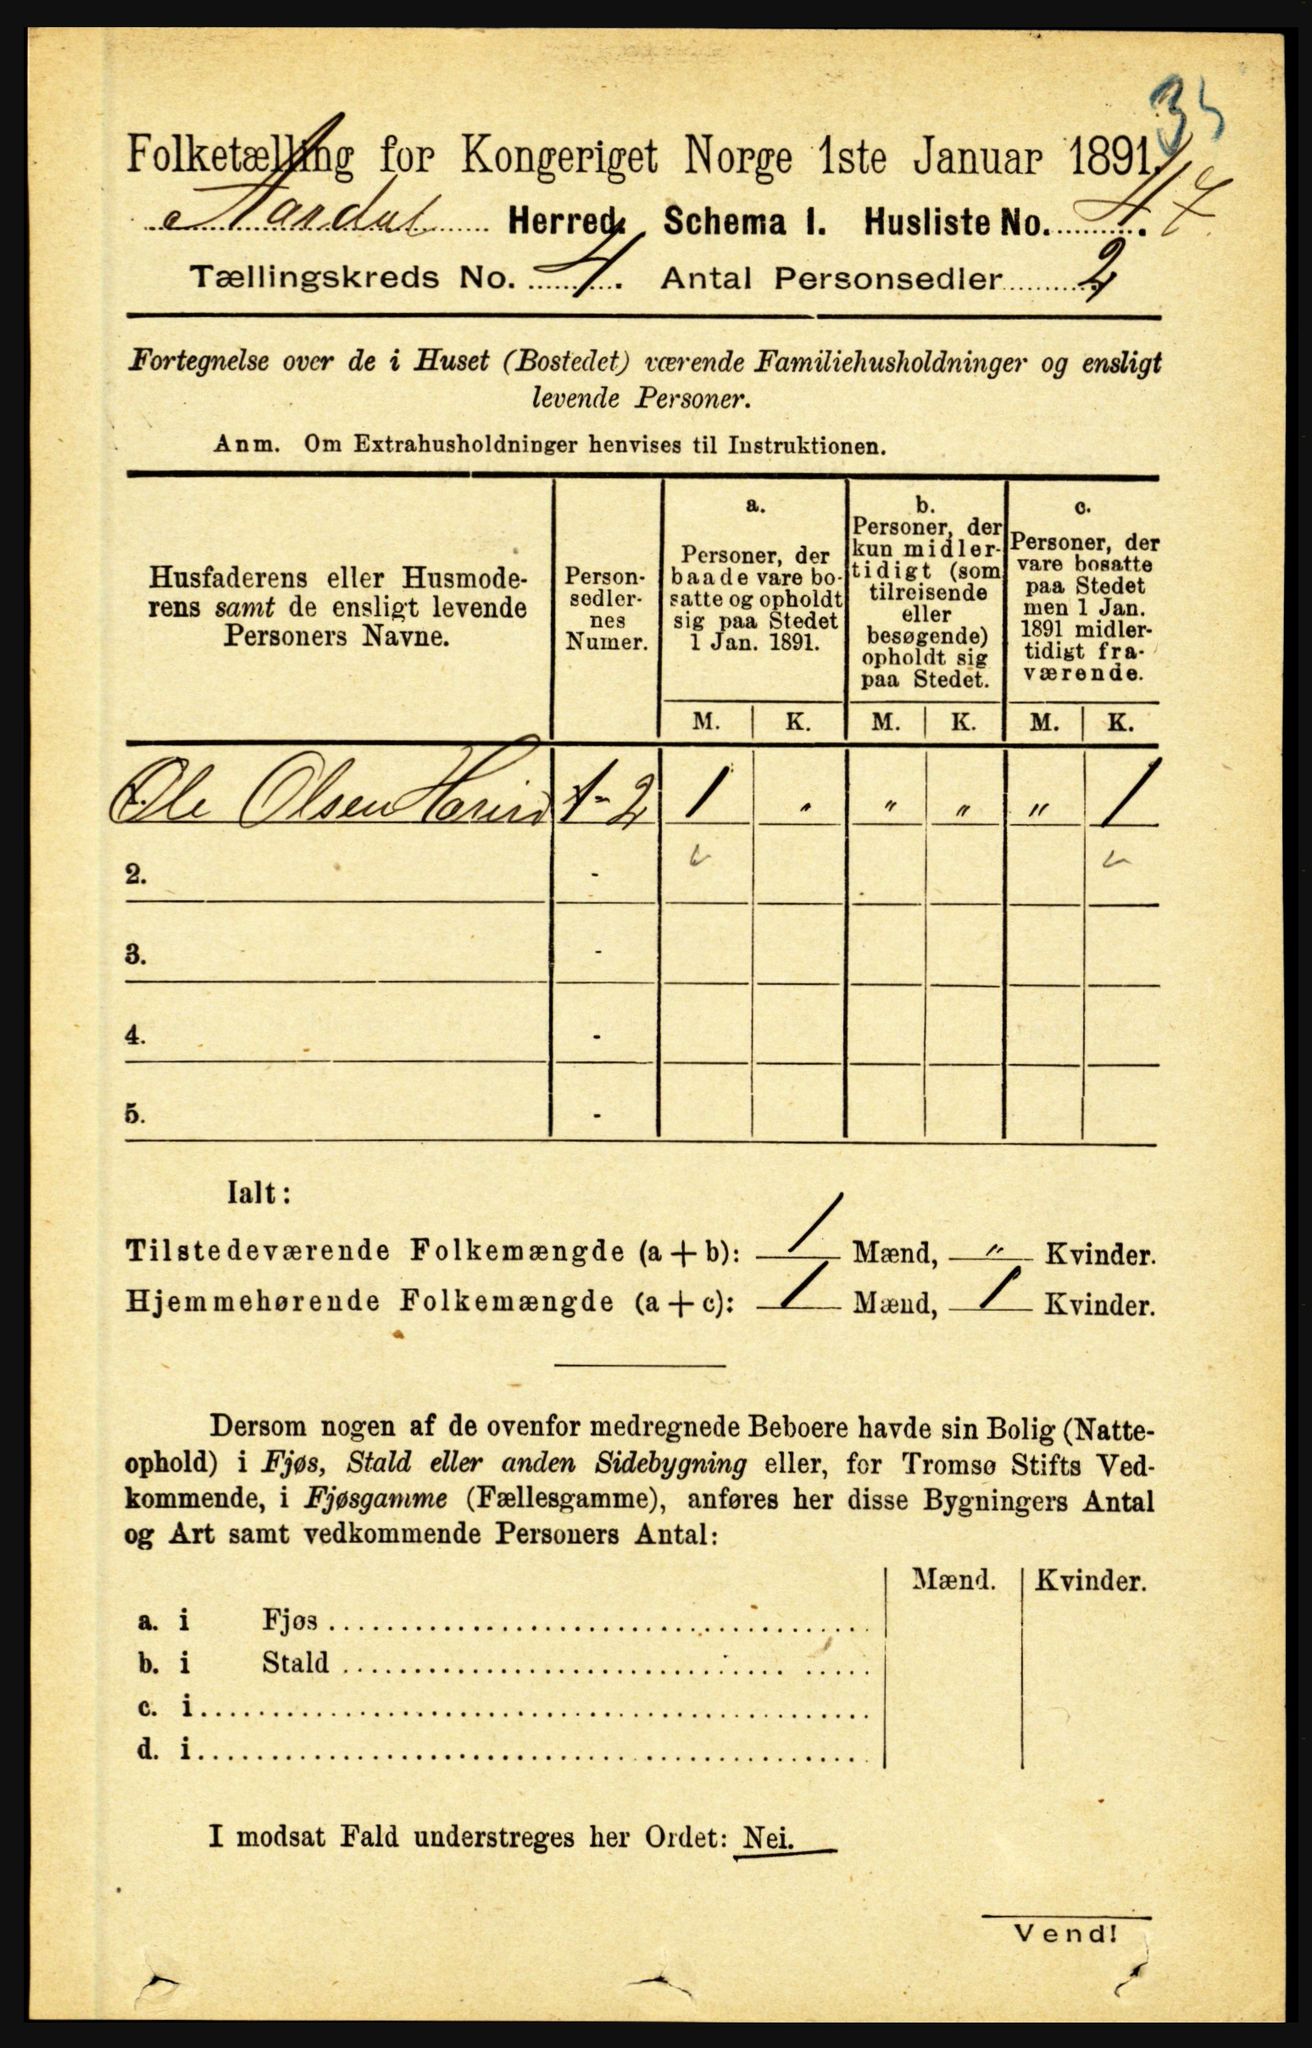 35
Folketælling for Kongeriget Norge 1ste Januar 1891.
Aardal Herred. Schema I. Husliste No. 47.
Tællingskreds No. 4. Antal Personsedler 2
Fortegnelse over de i Huset (Bostedet) værende Familiehusholdninger og ensligt
levende Personer.
Anm. Om Extrahusholdninger henvises til Instruktionen.
Husfaderens eller Husmode-
rens samt de ensligt levende
Personers Navne.
Person-
sedler-
nes
Numer.
a.
Personer, der
baade vare bo-
satte og opholdt
sig paa Stedet
1 Jan. 1891.
b.
Personer, der
kun midler-
tidigt (som
tilreisende
eller
besøgende)
opholdt sig
paa Stedet.
c.
Personer, der
vare bosatte
paa Stedet
men 1 Jan.
1891 midler-
tidigt fra-
værende.
M. K. M. K. M. K.
Ole Olsen 1-2 1 " " " " 1
2. -
3. -
4. -
5. -
Ialt:
Tilstedeværende Folkemængde (a + b): 1 Mænd, " Kvinder.
Hjemmehørende Folkemængde (a + c): 1 Mænd, 1 Kvinder.
Dersom nogen af de ovenfor medregnede Beboere havde sin Bolig (Natte-
ophold) i Fjøs, Stald eller anden Sidebygning eller, for Tromsø Stifts Ved-
kommende, i Fjøsgamme (Fællesgamme), anføres her disse Bygningers Antal
og Art samt vedkommende Personers Antal:
Mænd. Kvinder.
a. i Fjøs
b. i Stald
c. i
d. i
I modsat Fald understreges her Ordet: Nei.
Vend!